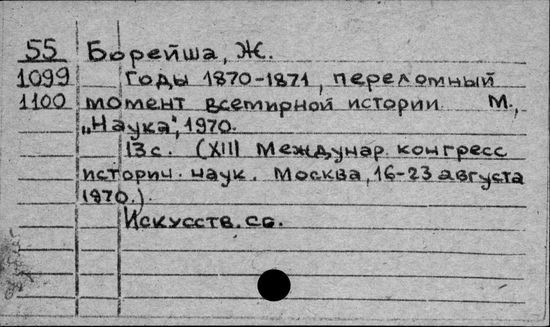 55 Борейша, Ж.
1099 Годы 1870-1871, переломный
1100 момент всемирной истории М.,
„Наука", 1970.
13с. (XIII Междунар. конгресс
историч. наук. Москва, 16-23 августа
1970.)
Искусств. св.